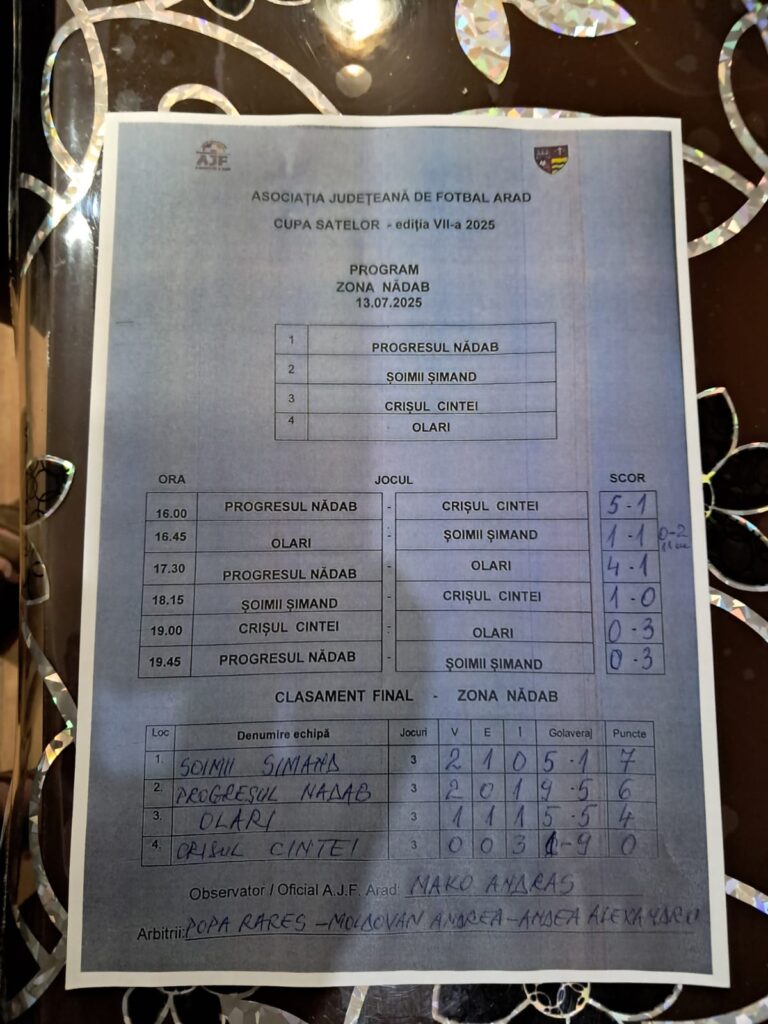 AJF
ASOCIAȚIA JUDEȚEANĂ DE FOTBAL ARAD
CUPA SATELOR - ediția VII-a 2025
PROGRAM
ZONA NĂDAB
13.07.2025
1 PROGRESUL NĂDAB
2 ȘOIMII ȘIMAND
3 CRIȘUL CINTEI
4 OLARI
ORA JOCUL SCOR
16.00 PROGRESUL NĂDAB - CRIȘUL CINTEI 5-1
16.45 OLARI - ȘOIMII ȘIMAND 1-1 0-2
17.30 PROGRESUL NĂDAB - OLARI 4-1
18.15 ȘOIMII ȘIMAND - CRIȘUL CINTEI 1-0
19.00 CRIȘUL CINTEI - OLARI 0-3
19.45 PROGRESUL NĂDAB - ȘOIMII ȘIMAND 0-3
CLASAMENT FINAL - ZONA NĂDAB
Loc Denumire echipă Jocuri V E I Golaveraj Puncte
1. ȘOIMII SIMAND 3 2 1 0 5-1 7
2. PROGREȘUL NADAB 3 2 0 1 9-5 6
3. OLARI 3 1 1 1 5-5 4
4. CRISUL CINTEI 3 0 0 3 1-9 0
Observator / Oficial A.J.F. Arad: MAKO ANDRAS
Arbitrii: POPA RAREȘ - MOLDOVAN ANDREA - ANDEA ALEXANDRU